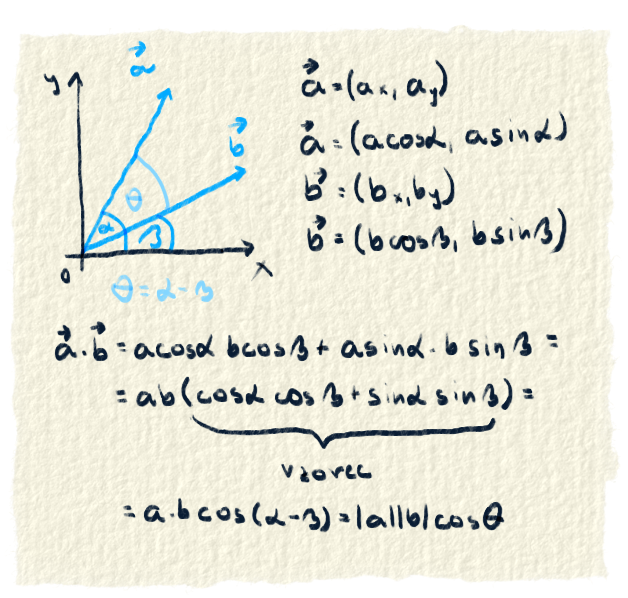 y
a⃗
b⃗
θ
α
β
0
x
θ = α - β
a⃗ = (ax, ay)
a⃗ = (a cosα, a sinα)
b⃗ = (bx, by)
b⃗ = (b cosβ, b sinβ)
a⃗ · b⃗ = a cosα b cosβ + a sinα · b sinβ =
= ab(cosα cosβ + sinα sinβ) =
vzorec
= a · b cos(α - β) = |a||b| cosθ